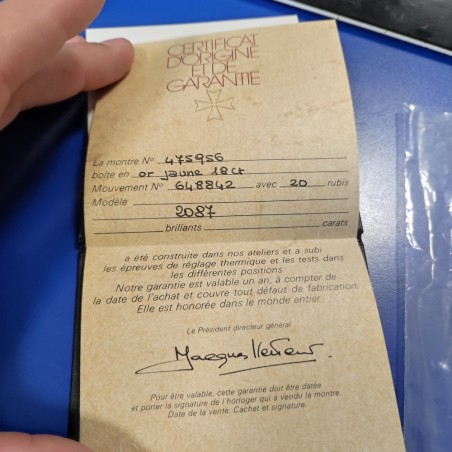 CERTIFICAT
D'ORIGINE
ET DE
GARANTIE
La montre Nº 475956
boîte en or jaune 18ct
Mouvement Nº 648842 avec 20 rubis
Modèle
2087
brillants carats
a été construite dans nos ateliers et a subi
les épreuves de réglage thermique et les tests dans
les différentes positions
Notre garantie est valable un an, à compter de
la date de l'achat et couvre tout défaut de fabrication.
Elle est honorée dans le monde entier.
Le Président directeur général
Jacques
Pour être valable, cette garantie doit être datée
et porter la signature de l'horloger qui a vendu la montre.
Date de la vente. Cachet et signature.